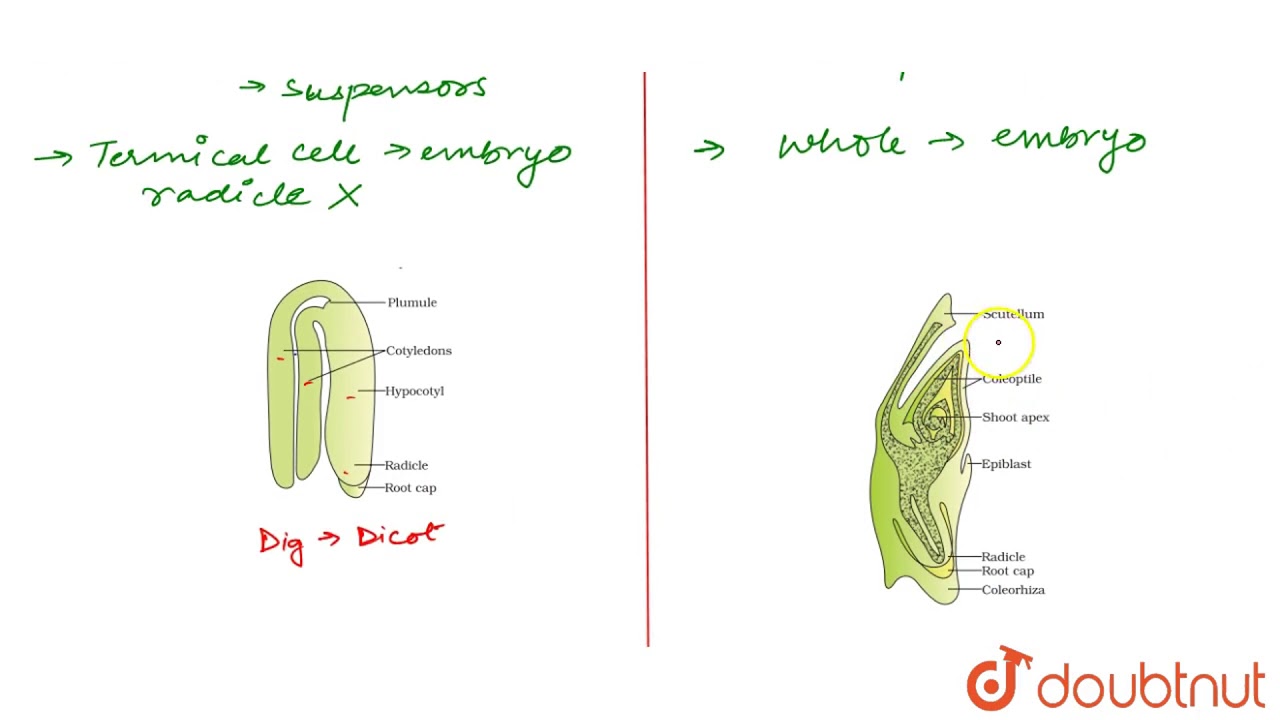 → suspensors
→ Termical cell → embryo
radicle X
Plumule
Cotyledons
Hypocotyl
Radicle
Root cap
Dig → Dicot
→ whole → embryo
Scutellum
Coleoptile
Shoot apex
Epiblast
Radicle
Root cap
Coleorhiza
doubtnut